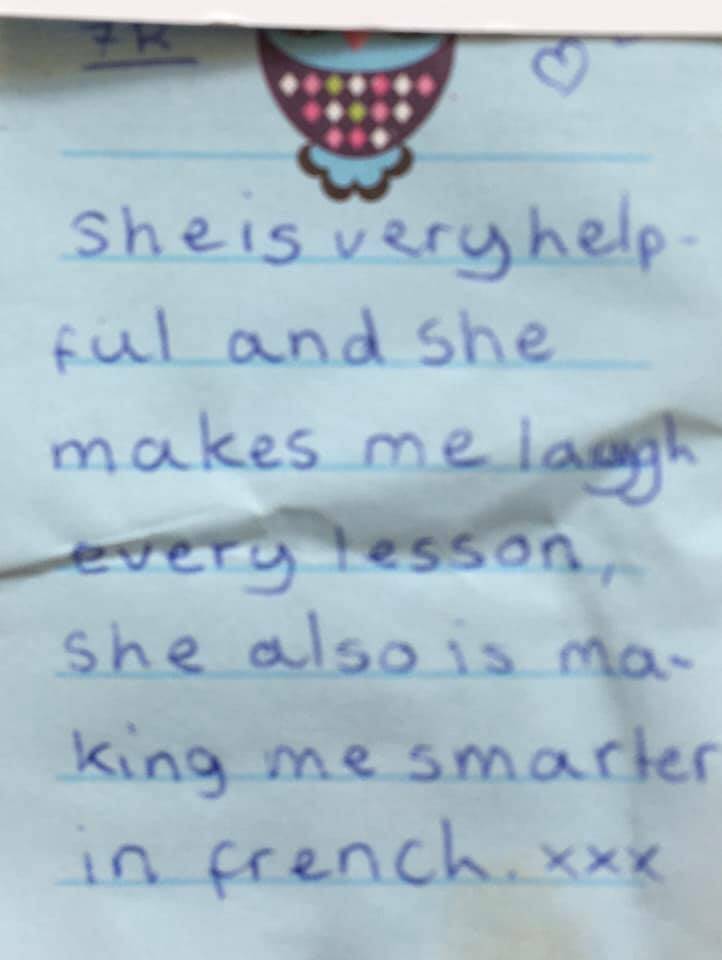 7R
she is very help-
ful and she
makes me laugh
every lesson,
she also is ma-
king me smarter
in french. xxx